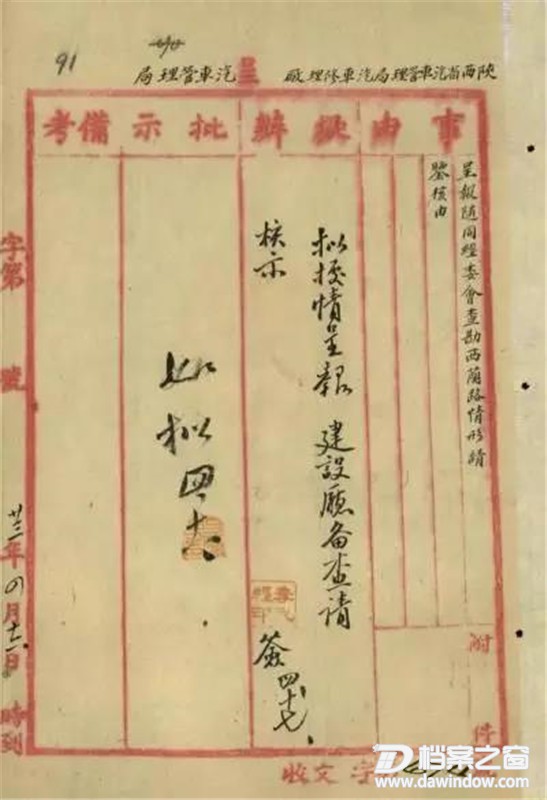 91
陕西省汽車管理局汽車修理厰 呈 汽車管理局
事由 擬辦 批示 備考
呈報随同經委會查勘西蘭路情形請
鑒核由
附件
拟據情呈報 建設廳备查请
核示
如拟
字第 號 廿三年四月 日 時到
收文 字
档案之窗
www.dawindow.com